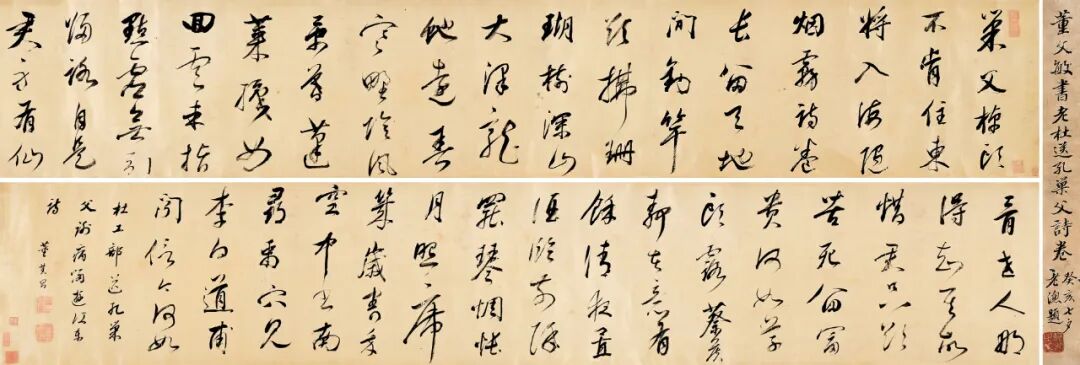 董文敏書老杜送孔巢父詩卷
癸亥七夕
老漁題
巢父掉頭
不肯住東
將入海隨
烟霧詩卷
長留天地
間釣竿
欲拂珊
瑚樹深山
大澤龍
蛇遠春
寒野陰風
景暮蓬
萊織女
回雲車指
點虛無引
歸路自是
君身有仙
骨世人那
得知其故
惜君只欲
苦死留富
貴何如草
頭露蔡侯
靜者意有
餘清夜置
酒臨前除
罷琴惆悵
月照席
幾歲書寄
空中書南
尋禹穴見
李白道甫
問信今何如
杜工部送孔巢
父謝病歸遊江東
詩
董其昌